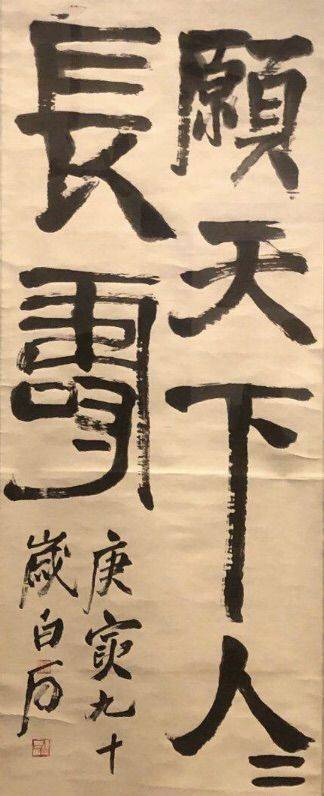 願天下人〻
長壽
庚寅九十
歲白石